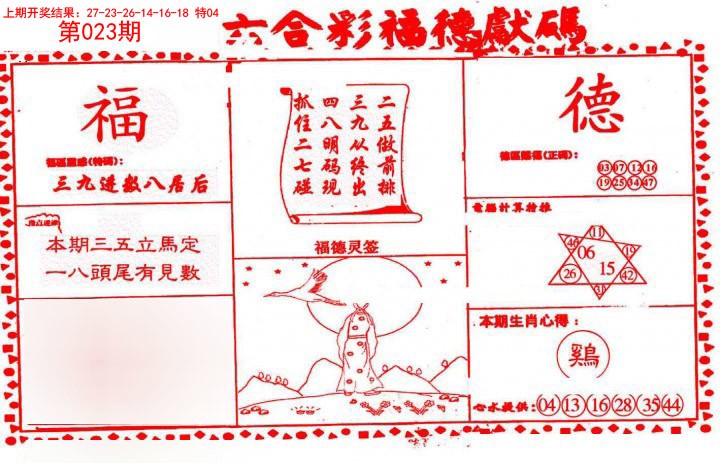 上期开奖结果：27-23-26-14-16-18 特04
第023期
六合彩福德獻碼
福
三九进数八居后
本期三五立馬定
一八頭尾有見數
二五做前排
三九以终出
四八明码现
抓住二七碰
福德灵签
德
03 07 12 16
19 25 34 47
電腦計算特推
11
46 19
06
15
26 42
31
本期生肖心得：
鷄
心水提供：04 13 16 28 35 44